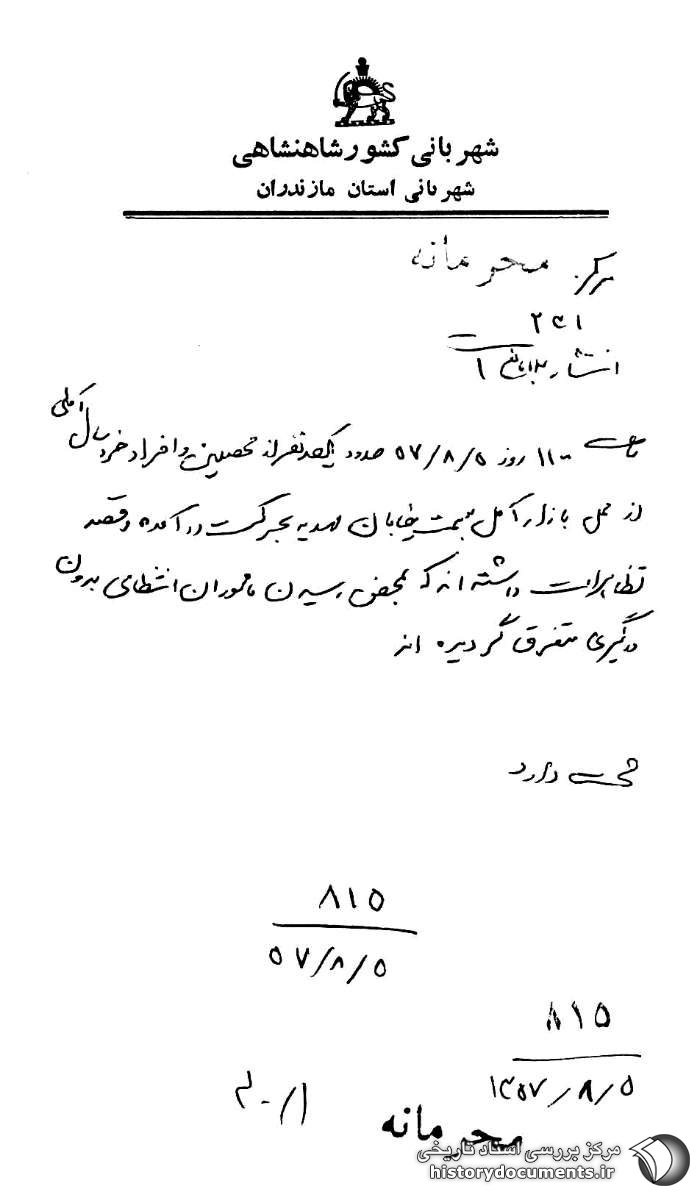 شهربانی کشور شاهنشاهی
شهربانی استان مازندران
مرکز محرمانه
۲۴۱
انتشار ۱
۱۱۰۰ روز ۵۷/۸/۵ حدود یکصد نفر از محصلین و افراد خردسال آملی
از محل بازار آمل بسمت خیابان مهدیه بحرکت در آمده و قصد
تظاهرات داشته اند که بمحض رسیدن ماموران انتظامی بدون
درگیری متفرق گردیده اند
دارد
۸۱۵
۵۷/۸/۵
۸۱۵
۱۳۵۷/۸/۵
محرمانه
مرکز بررسی اسناد تاریخی
historydocuments.ir